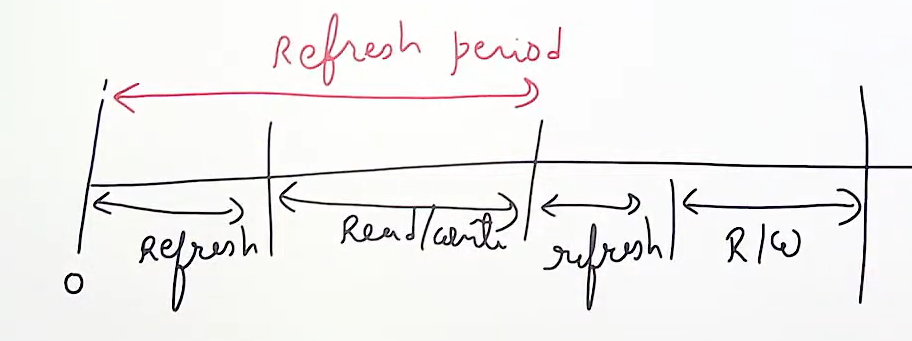 Refresh period
Refresh Read/write refresh R/W
0